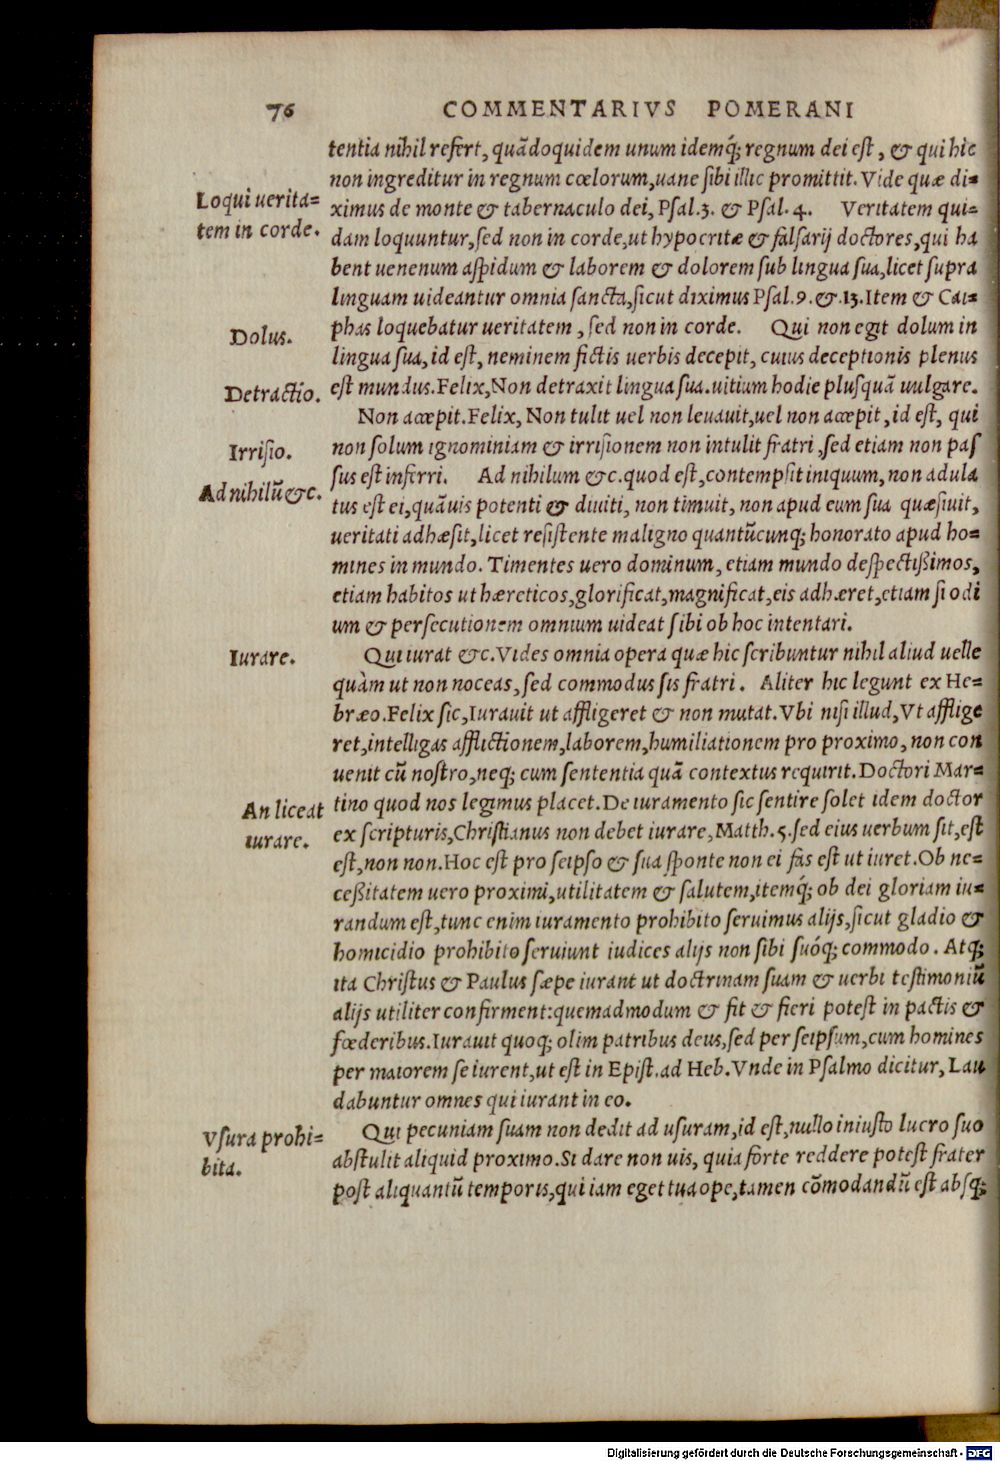 76 COMMENTARIVS POMERANI
tentia nihil refert, quãdoquidem unum idemq́; regnum dei est, & qui hic
non ingreditur in regnum cœlorum, uane sibi illic promittit. Vide quæ di=
Loqui uerita=
tem in corde.
ximus de monte & tabernaculo dei, Psal.3. & Psal.4. Veritatem qui=
dam loquuntur, sed non in corde, ut hypocritæ & falsarij doctores, qui ha
bent uenenum aspidum & laborem & dolorem sub lingua sua, licet supra
linguam uideantur omnia sancta, sicut diximus Psal.9.&.13. Item & Cai=
Dolus.
phas loquebatur ueritatem, sed non in corde. Qui non egit dolum in
lingua sua, id est, neminem fictis uerbis decepit, cuius deceptionis plenus
Detractio.
est mundus. Felix, Non detraxit lingua sua. uitium hodie plusquã uulgare.
Non accepit. Felix, Non tulit uel non leuauit, uel non accepit, id est, qui
Irrisio.
non solum ignominiam & irrisionem non intulit fratri, sed etiam non pas
sus est inferri. Ad nihilum &c. quod est, contempsit iniquum, non adula
Ad nihilũ &c.
tus est ei, quãuis potenti & diuiti, non timuit, non apud eum sua quæsiuit,
ueritati adhæsit, licet resistente maligno quantũcunq; honorato apud ho=
mines in mundo. Timentes uero dominum, etiam mundo despectißimos,
etiam habitos ut hæreticos, glorificat, magnificat, eis adhæret, etiam si odi
um & persecutionem omnium uideat sibi ob hoc intentari.
Iurare.
Qui iurat &c. Vides omnia opera quæ hic scribuntur nihil aliud uelle
quàm ut non noceas, sed commodus sis fratri. Aliter hic legunt ex He=
bræo. Felix sic, Iurauit ut affligeret & non mutat. Vbi nisi illud, Vt afflige
ret, intelligas afflictionem, laborem, humiliationem pro proximo, non con
uenit cũ nostro, neq; cum sententia quã contextus requirit. Doctori Mar=
An liceat
iurare.
tino quod nos legimus placet. De iuramento sic sentire solet idem doctor
ex scripturis, Christianus non debet iurare, Matth.5. sed eius uerbum sit, est
est, non non. Hoc est pro seipso & sua sponte non ei fas est ut iuret. Ob ne=
ceßitatem uero proximi, utilitatem & salutem, itemq́; ob dei gloriam iu=
randum est, tunc enim iuramento prohibito seruimus alijs, sicut gladio &
homicidio prohibito seruiunt iudices alijs non sibi suóq; commodo. Atq;
ita Christus & Paulus sæpe iurant ut doctrinam suam & uerbi testimoniũ
alijs utiliter confirment: quemadmodum & fit & fieri potest in pactis &
fœderibus. Iurauit quoq; olim patribus deus, sed per seipsum, cum homines
per maiorem se iurent, ut est in Epist. ad Heb. Vnde in Psalmo dicitur, Lau
dabuntur omnes qui iurant in eo.
Vsura prohi=
bita.
Qui pecuniam suam non dedit ad usuram, id est, nullo iniusto lucro suo
abstulit aliquid proximo. Si dare non uis, quia forte reddere potest frater
post aliquantũ temporis, qui iam eget tua ope, tamen cõmodandũ est absq;
Digitalisierung gefördert durch die Deutsche Forschungsgemeinschaft - DFG